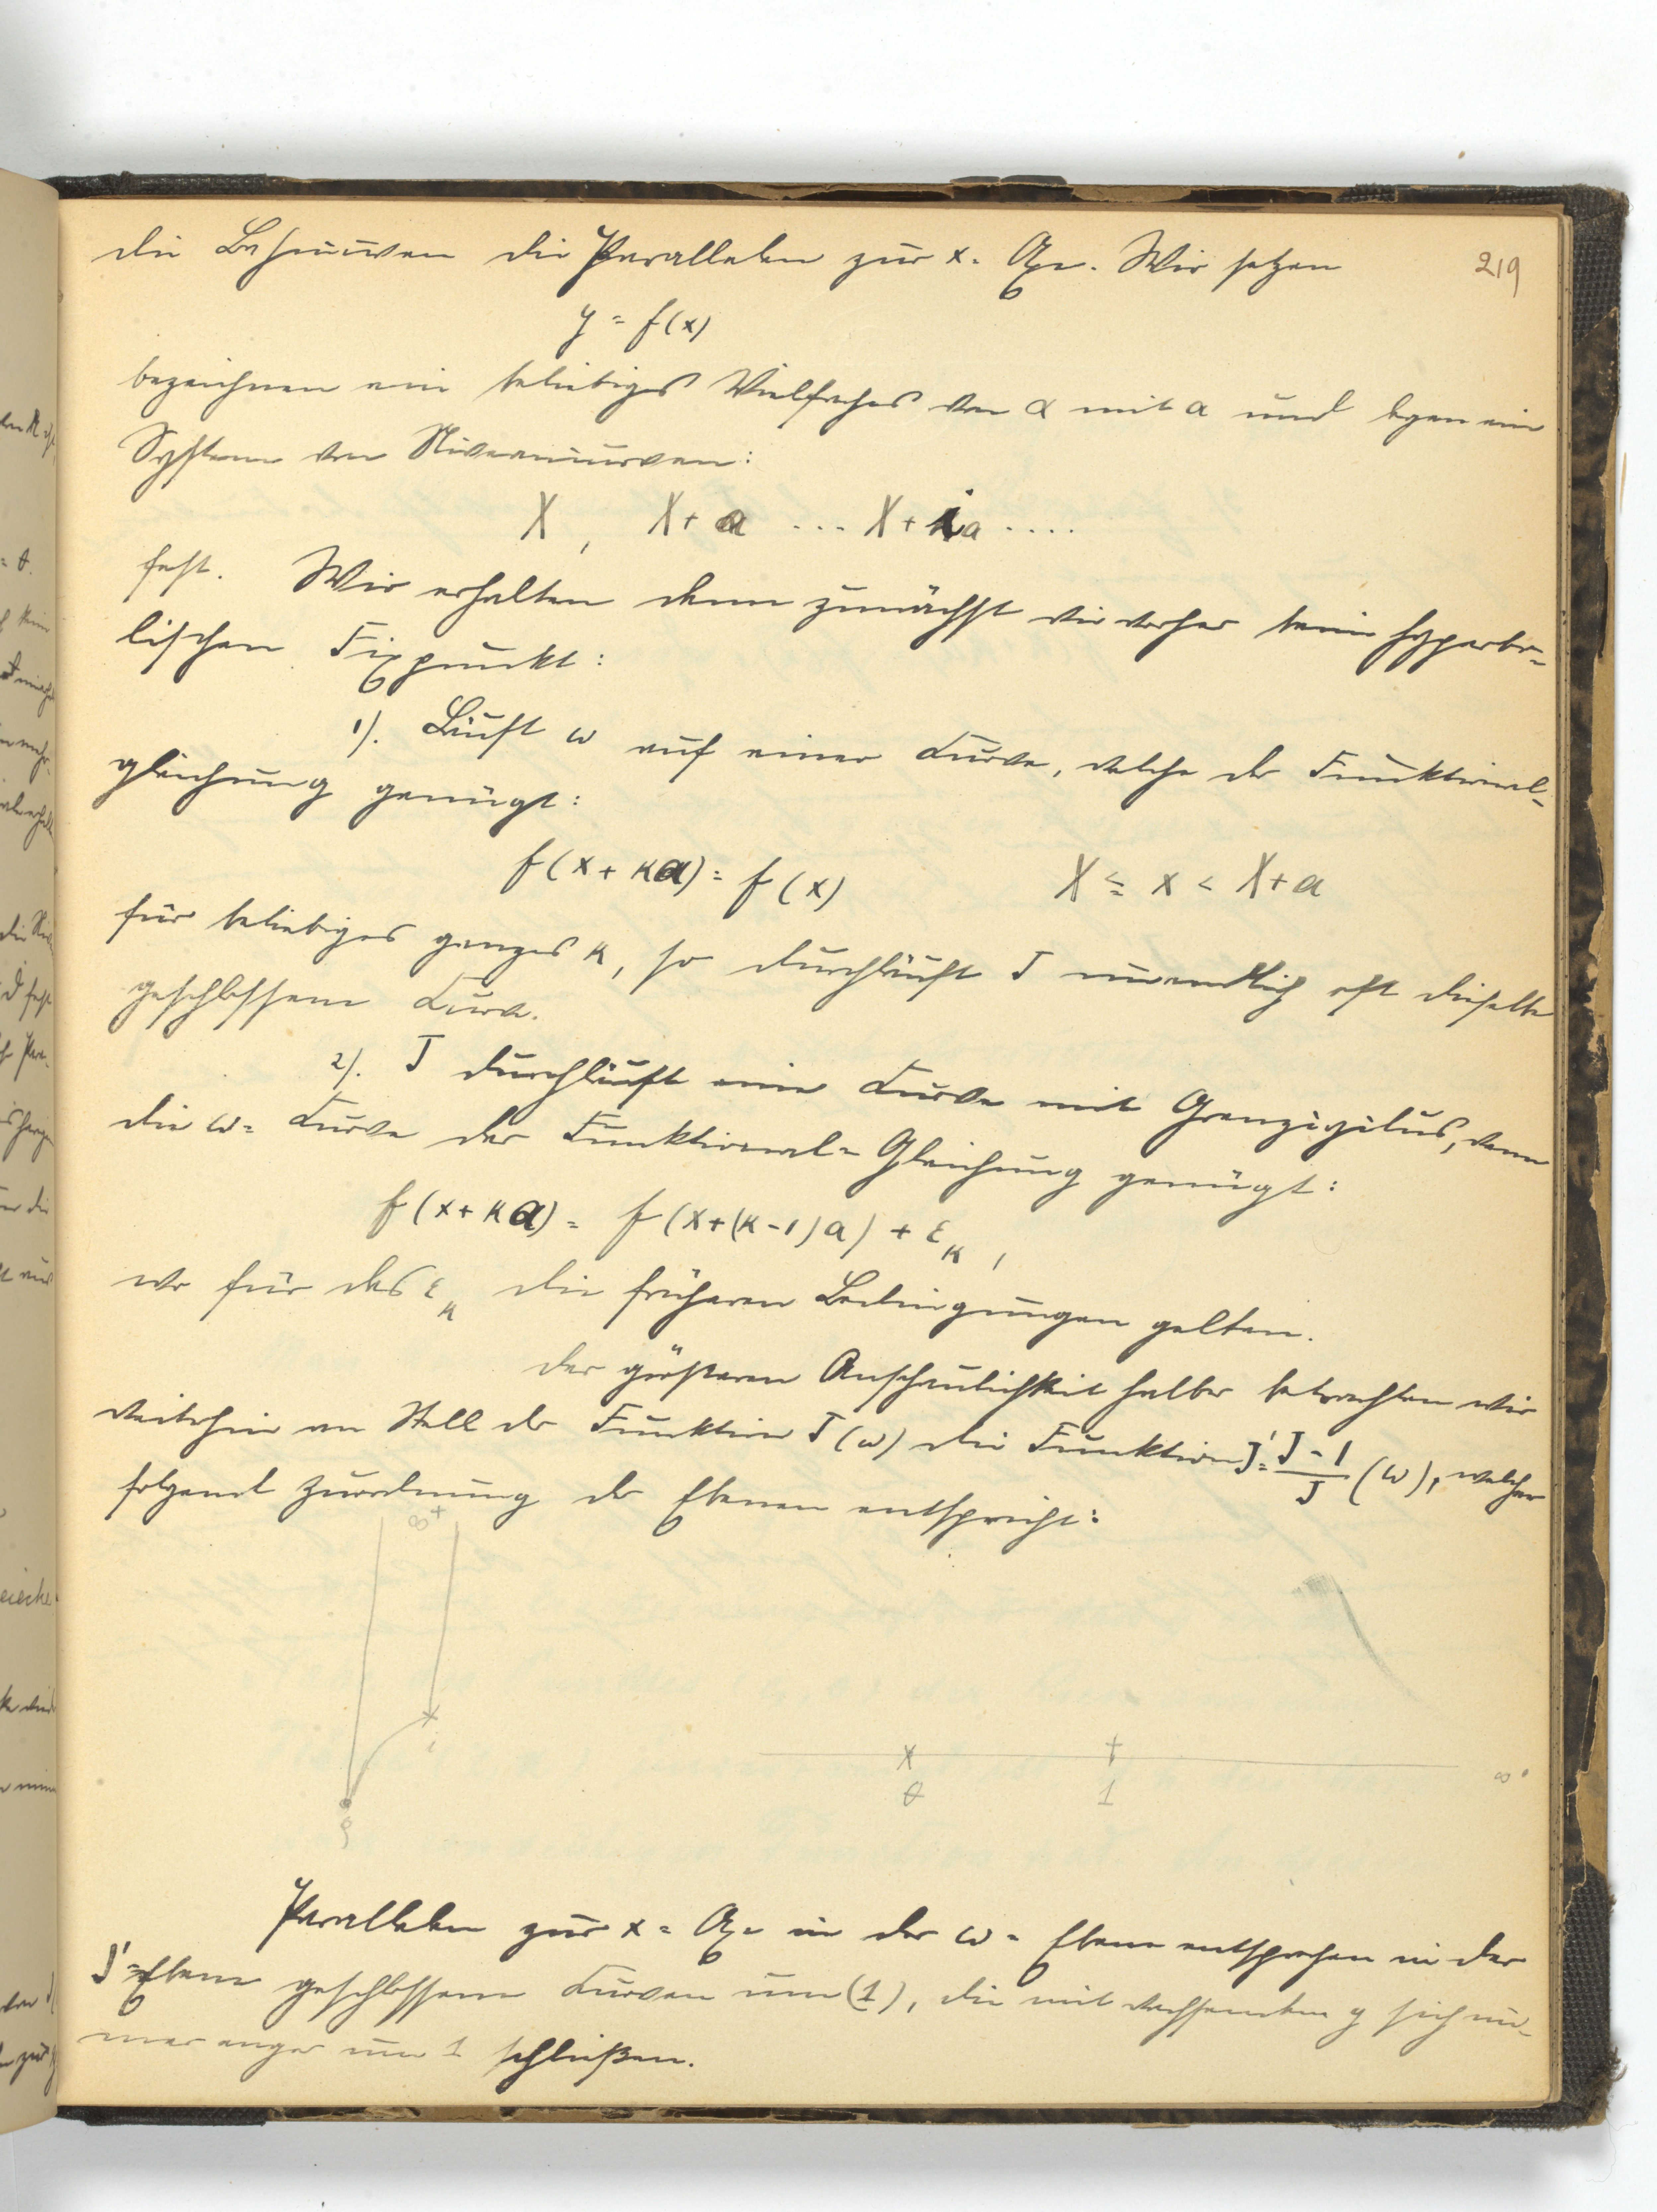 219
die Bahnkurven die Parallelen zur x-Axe. Wir setzen
y = f(x)
bezeichnen ein beliebiges Vielfaches von α mit a und legen ein
System von Niveaukurven:
X, X+a ... X+ia ....
fest. Wir erhalten dann zunächst wie vorher beim hyperbo-
lischen Fixpunkt:
1). Läuft ω auf einer Kurve, welche der Funktional-
gleichung genügt:
f(x+κa) = f(x) X ≦ x < X+a
für beliebiges ganzes κ, so durchläuft J unendlich oft dieselbe
geschlossene Kurve.
2). J durchläuft eine Kurve mit Grenzzyklus, wenn
die ω-Kurve der Funktional-Gleichung genügt:
f(x+κa) = f(x+(κ-1)a) + ε_κ,
wo für das ε_κ die früheren Bedingungen gelten.
Der größeren Anschaulichkeit halber betrachten wir
weiterhin an Stelle der Funktion J(ω) die Funktion J' = (J-1)/J (ω), welcher
folgende Zuordnung der Ebenen entspricht:
∞+
i
ρ
0 1 ∞
Parallelen zur x-Axe in der ω-Ebene entsprechen in der
J'-Ebene geschlossene Kurven um (1), die mit wachsendem y sich im-
mer enger um 1 schließen.